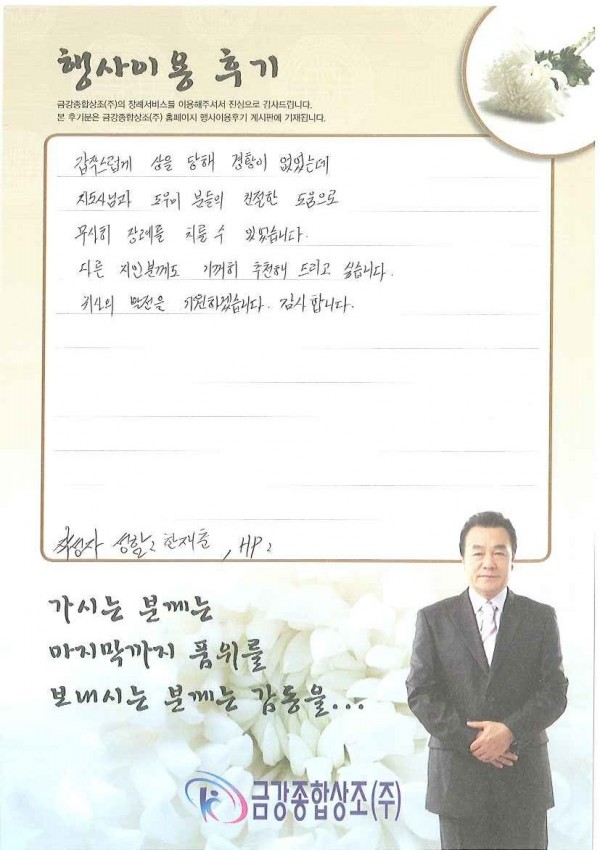 행사이용 후기
금강종합상조(주)의 장례서비스를 이용해주셔서 진심으로 감사드립니다.
본 후기분은 금강종합상조(주) 홈페이지 행사이용후기 게시판에 기재됩니다.
갑작스럽게 상을 당해 경황이 없었는데
지도사님과 도우미 분들의 친절한 도움으로
무사히 장례를 치룰 수 있었습니다.
다른 지인분께도 기꺼히 추천해 드리고 싶습니다.
귀사의 발전을 기원하겠습니다. 감사합니다.
작성자 성함: 한재춘, HP:
가시는 분께는
마지막까지 품위를
보내시는 분께는 감동을...
금강종합상조(주)